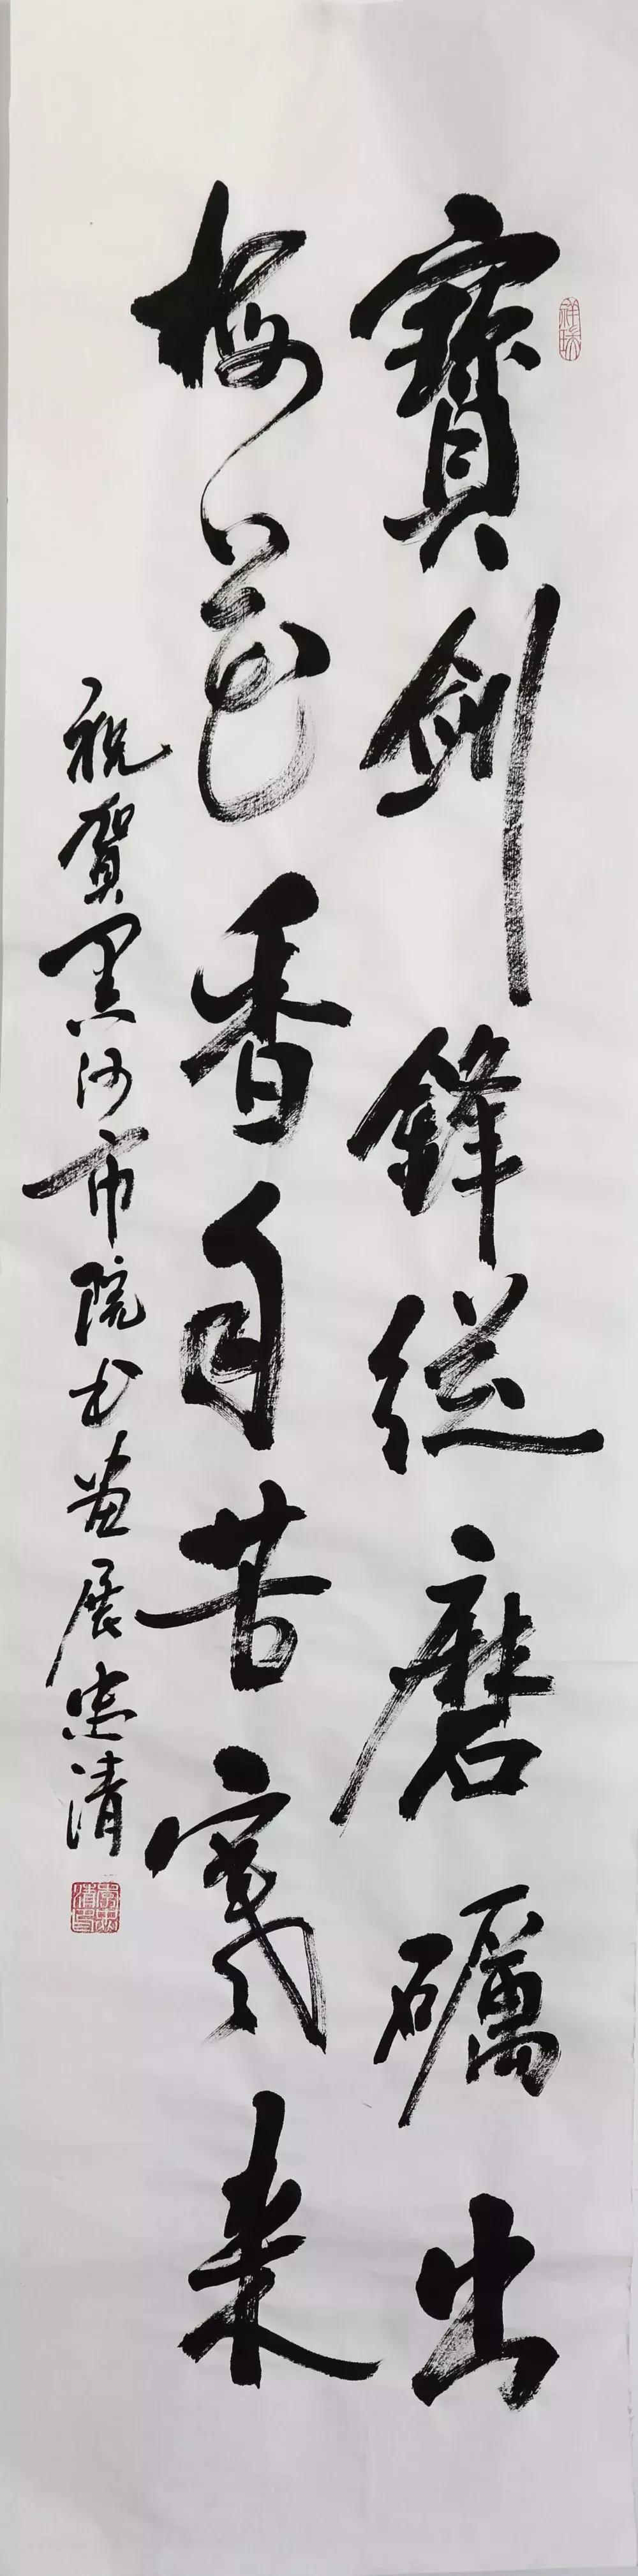 寶劍鋒從磨礪出
梅花香自苦寒来
祝賀黑河市院书画展忠清